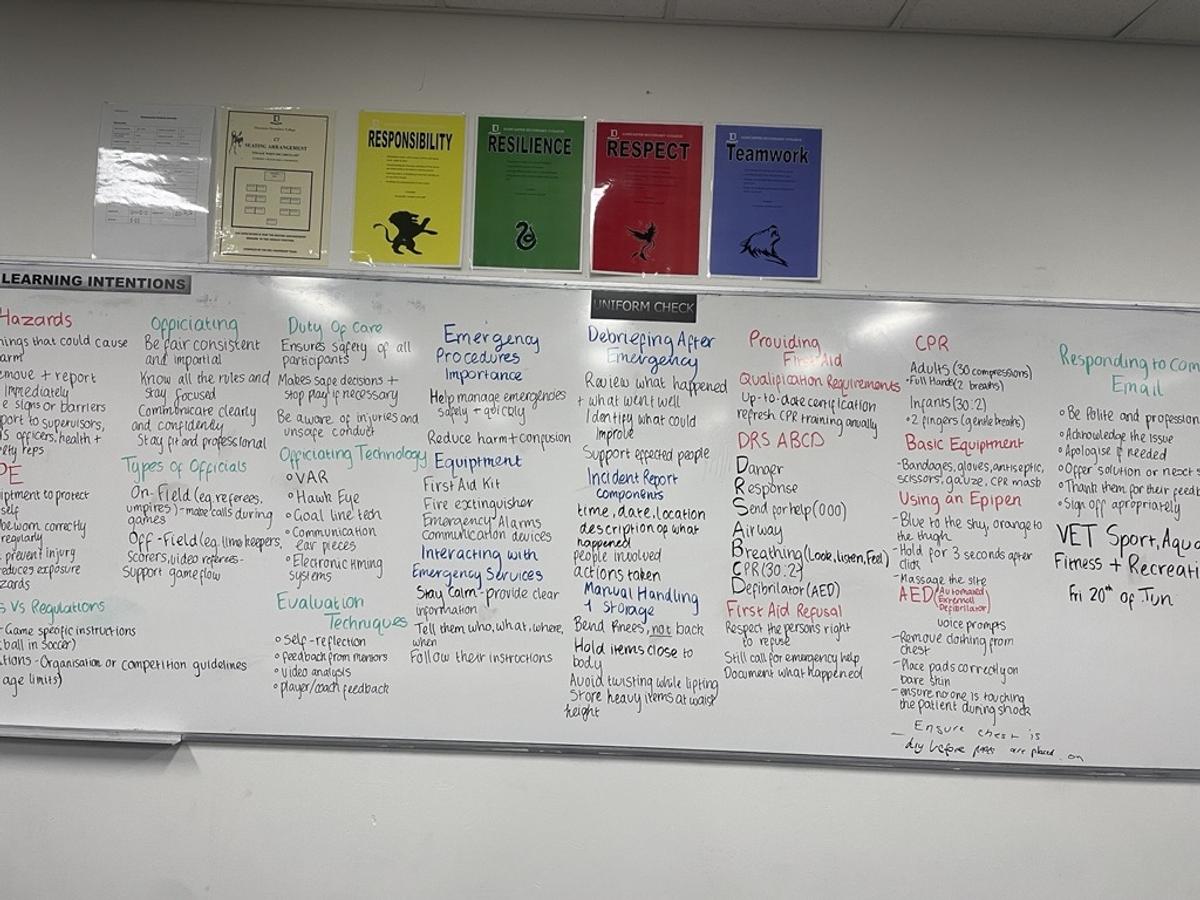 SEATING ARRANGEMENT
RESPONSIBILITY
RESILIENCE
RESPECT
Teamwork
LEARNING INTENTIONS
UNIFORM CHECK
Hazards
that could cause
report
Immediately
signs or barriers
to supervisors,
officers, health +
reps
to protect
be worn correctly
regularly
prevent injury
exposure
Vs Regulations
-Game specific instructions
ball in Soccer)
- Organisation or competition guidelines
age limits)
Officiating
Be fair consistent
and impartial
Know all the rules and
stay focused
Communicate clearly
and confidently
Stay fit and professional
Types of Officials
On-Field (eg. referees,
umpires) - make calls during
games
Off-Field (eg. timekeepers,
scorers, video referees-
support game flow
Duty Of Care
Ensures safety of all
participants
Makes safe decisions +
stop play if necessary
Be aware of injuries and
unsafe conduct
Officiating Technology
VAR
Hawk Eye
Goal line tech
Communication
ear pieces
Electronic timing
systems
Evaluation
Techniques
self-reflection
feedback from mentors
video analysis
player/coach feedback
Emergency
Procedures
Importance
Help manage emergencies
safely + quickly
Reduce harm + confusion
Equiptment
First Aid Kit
Fire extinguisher
Emergency Alarms
communication devices
Interacting with
Emergency Services
Stay calm - provide clear
information
Tell them who, what, where,
when
Follow their instructions
Debriefing After
Emergency
Review what happened
+ what went well
Identify what could
improve
Support effected people
Incident Report
components
time, date, location
description of what
happened
people involved
actions taken
Manual Handling
+ Storage
Bend knees, not back
Hold items close to
body
Avoid twisting while lifting
Store heavy items at waist
height
Providing
First Aid
Qualification Requirements
Up-to-date certification
refresh CPR training anually
DRS ABCD
Danger
Response
Send for help (000)
Airway
Breathing (Look, listen, Feel)
CPR (30:2)
Defibrilator (AED)
First Aid Refusal
Respect the persons right
to refuse
Still call for emergency help
Document what happened
CPR
Adults (30 compressions)
Full Hands (2 breaths)
Infants (30:2)
2 fingers (gentle breaths)
Basic Equiptment
-Bandages, gloves, antiseptic,
scissors, gauze, CPR mask
Using an Epipen
-Blue to the sky, orange to
the thigh
-Hold for 3 seconds after
click
-Massage the site
AED (Automated
External
Defibrilator)
voice prompts
-Remove clothing from
chest
-Place pads correctly on
bare skin
-ensure no one is touching
the patient during shock
- Ensure chest is
dry before pads are placed on
Responding to
Email
Be Polite and
Acknowledge the issue
Apologise if needed
Offer solution or next
Thank them for their
Sign off apropriately
VET Sport,
Fitness +
Fri 20th of Jun